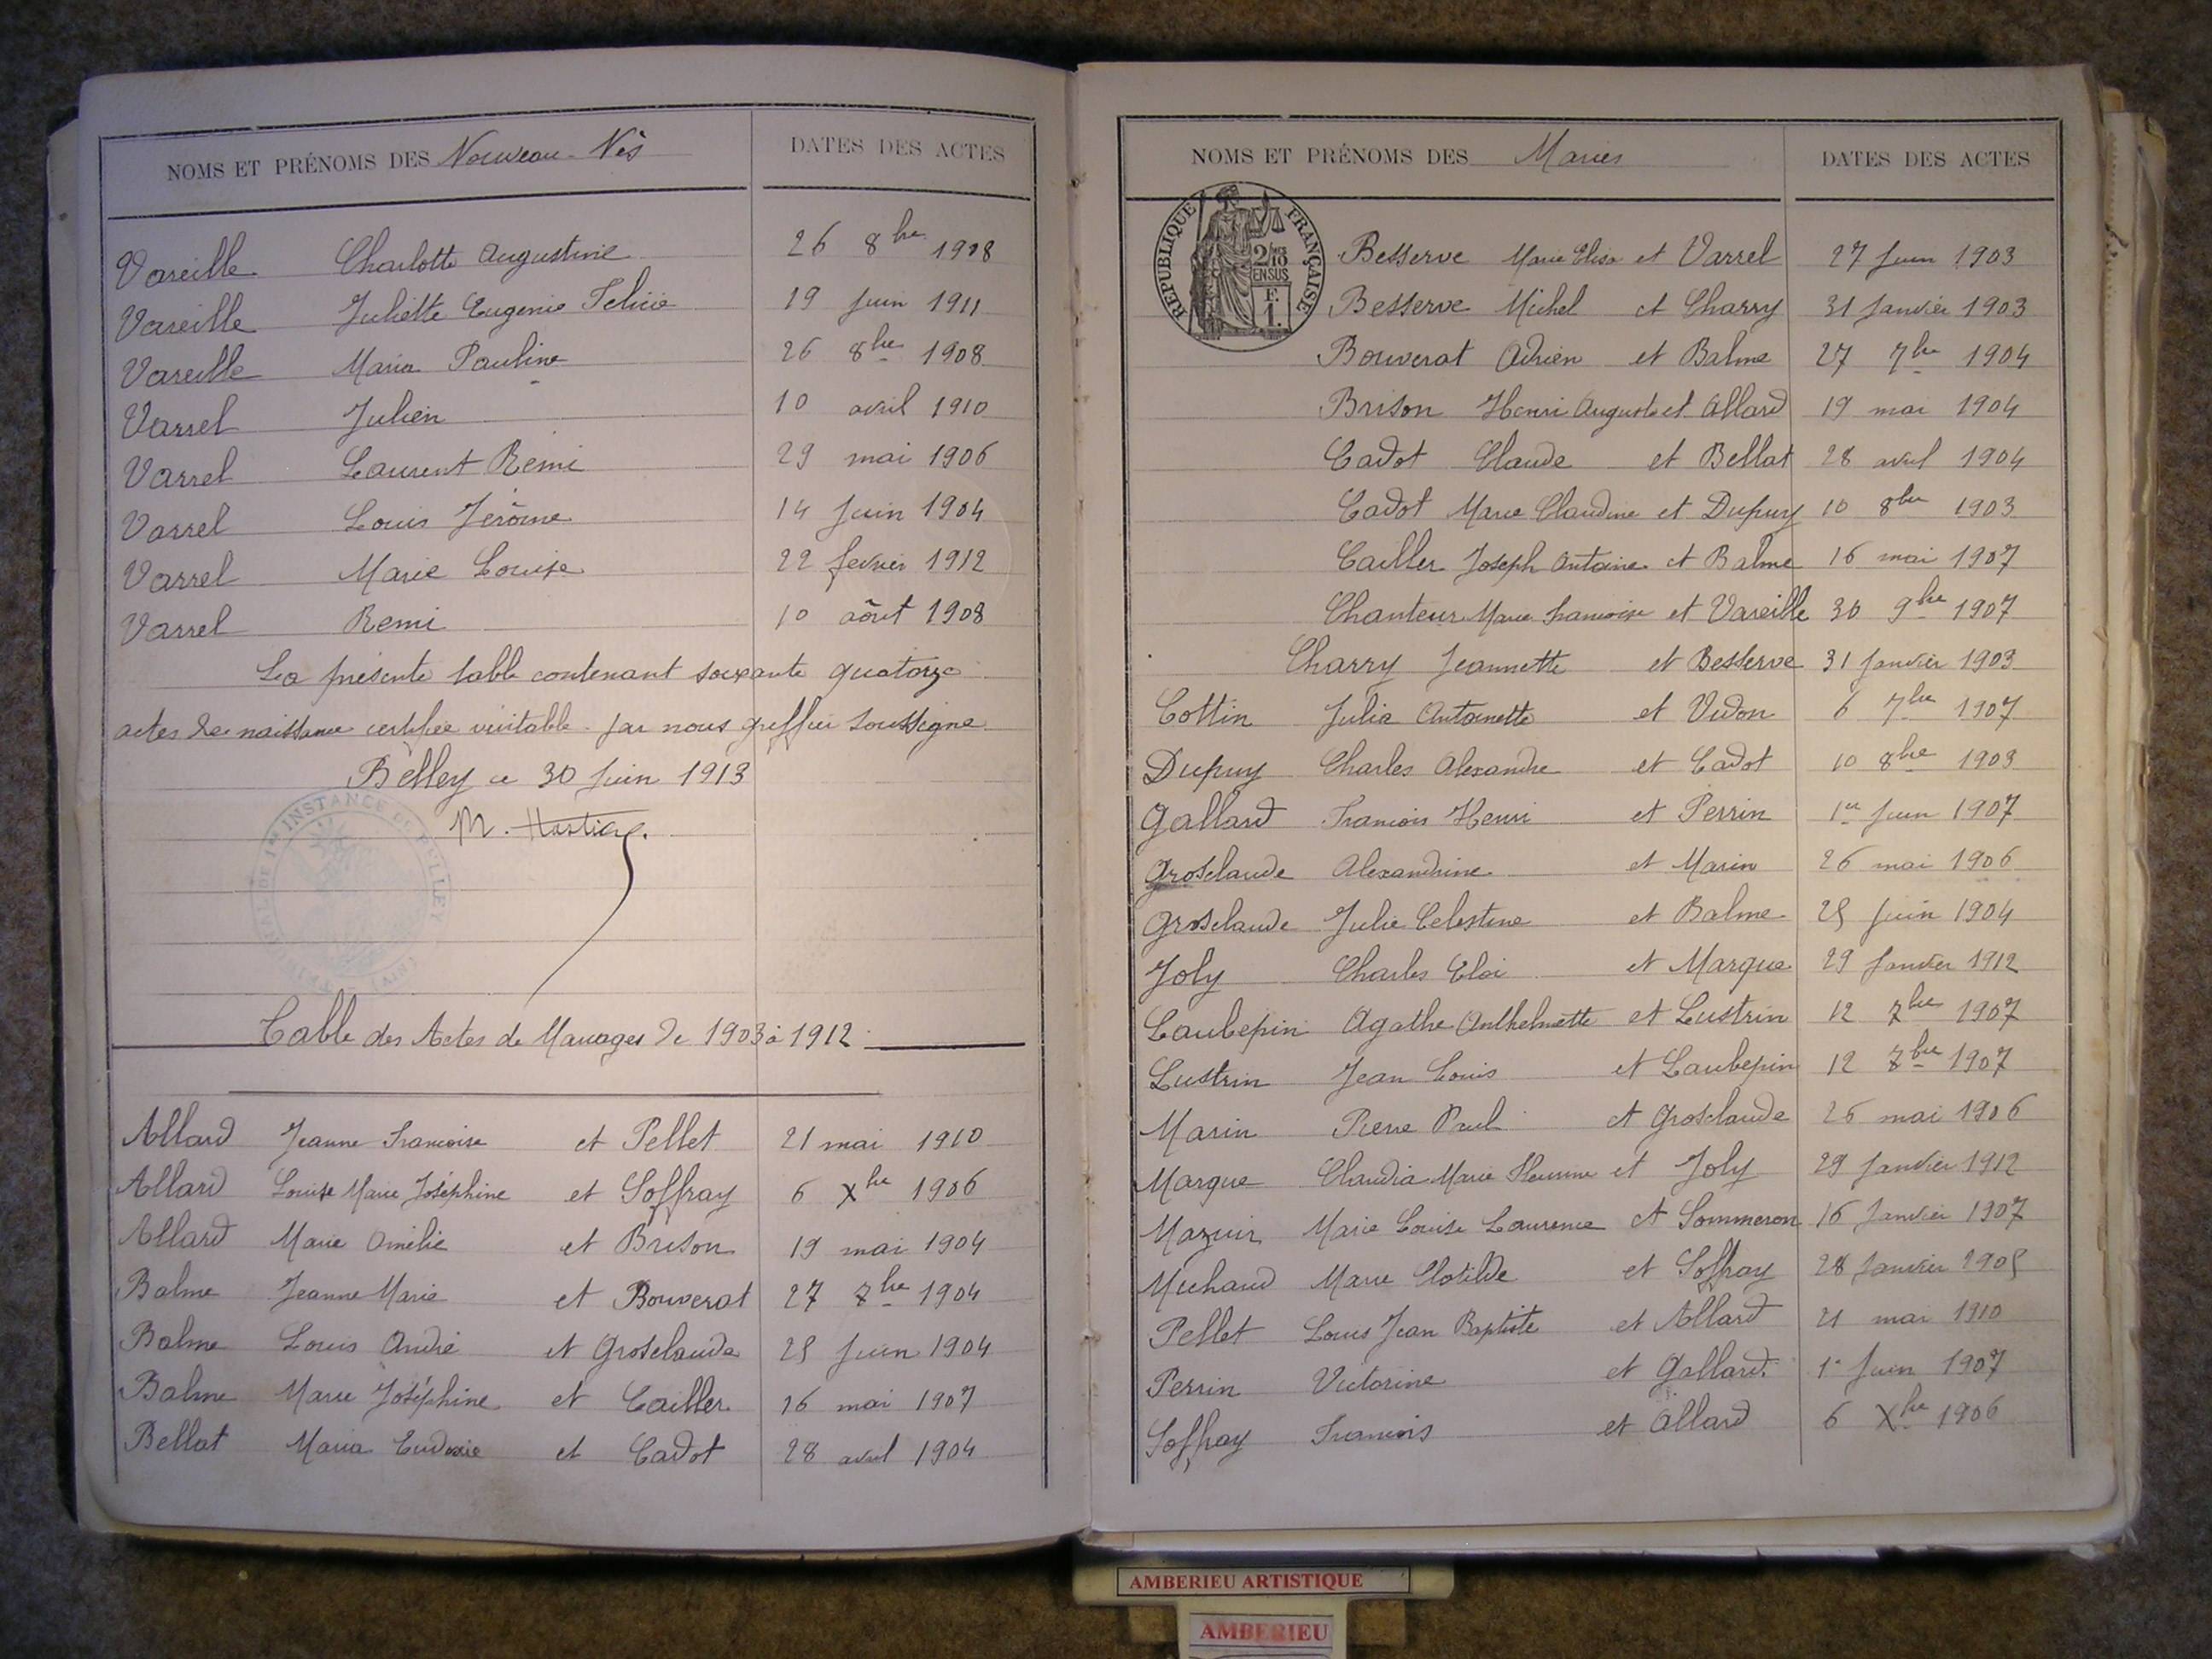 NOMS ET PRÉNOMS DES Nouveau-Nés DATES DES ACTES
Vareille Charlotte Augustine 26 8bre 1908
Vareille Juliette Eugenie Felicie 19 Juin 1911
Vareille Maria Pauline 26 8bre 1908
Varrel Julien 10 avril 1910
Varrel Laurent Remi 29 mai 1906
Varrel Louis Jérôme 14 Juin 1904
Varrel Marie Louise 22 fevrier 1912
Varrel Remi 10 aôut 1908
La présente table contenant soixante quatorze
actes de naissance certifiée véritable par nous greffier soussigné
Belley ce 30 Juin 1913
Table des Actes de Mariages de 1903 à 1912
Allard Jeanne Francoise et Pellet 21 mai 1910
Allard Louise Marie Joséphine et Soffray 6 Xbre 1906
Allard Marie Amélie et Brison 19 mai 1904
Balme Jeanne Marie et Bouverat 27 7bre 1904
Balme Louis André et Groselaude 25 Juin 1904
Balme Marie Joséphine et Cailler 16 mai 1907
Bellat Maria Eudoxie et Cadot 28 avril 1904
NOMS ET PRÉNOMS DES Mariés DATES DES ACTES
RÉPUBLIQUE FRANÇAISE
2/10
EN SUS
F.
1.
Besserve Marie Elisa et Varrel 27 Juin 1903
Besserve Michel et Charry 31 Janvier 1903
Bouverat Adrien et Balme 27 7bre 1904
Brison Henri Auguste et Allard 19 mai 1904
Cadot Claude et Bellat 28 avril 1904
Cadot Marie Claudine et Dupuy 10 8bre 1903
Cailler Joseph Antoine et Balme 16 mai 1907
Chanteur Marie Francoise et Vareille 30 9bre 1907
Charry Jeannette et Besserve 31 Janvier 1903
Cottin Julia Antoinette et Vudon 6 7bre 1907
Dupuy Charles Alexandre et Cadot 10 8bre 1903
Gallard Francois Henri et Perrin 1er Juin 1907
Groselaude Alexandrine et Marin 26 mai 1906
Groselaude Julie Celestine et Balme 25 Juin 1904
Joly Charles Eloi et Marque 29 Janvier 1912
Laubepin Agathe Anthelmette et Lustrin 12 7bre 1907
Lustrin Jean Louis et Laubepin 12 7bre 1907
Marin Pierre Paul et Groselaude 26 mai 1906
Marque Claudia Marie Fleurine et Joly 29 Janvier 1912
Mazuir Marie Louise Laurence et Sommeron 16 Janvier 1907
Michaud Marie Clotilde et Soffray 28 Janvier 1905
Pellet Louis Jean Baptiste et Allard 21 mai 1910
Perrin Victorine et Gallard 1er Juin 1907
Soffray Francois et Allard 6 Xbre 1906
AMBERIEU ARTISTIQUE
AMBERIEU